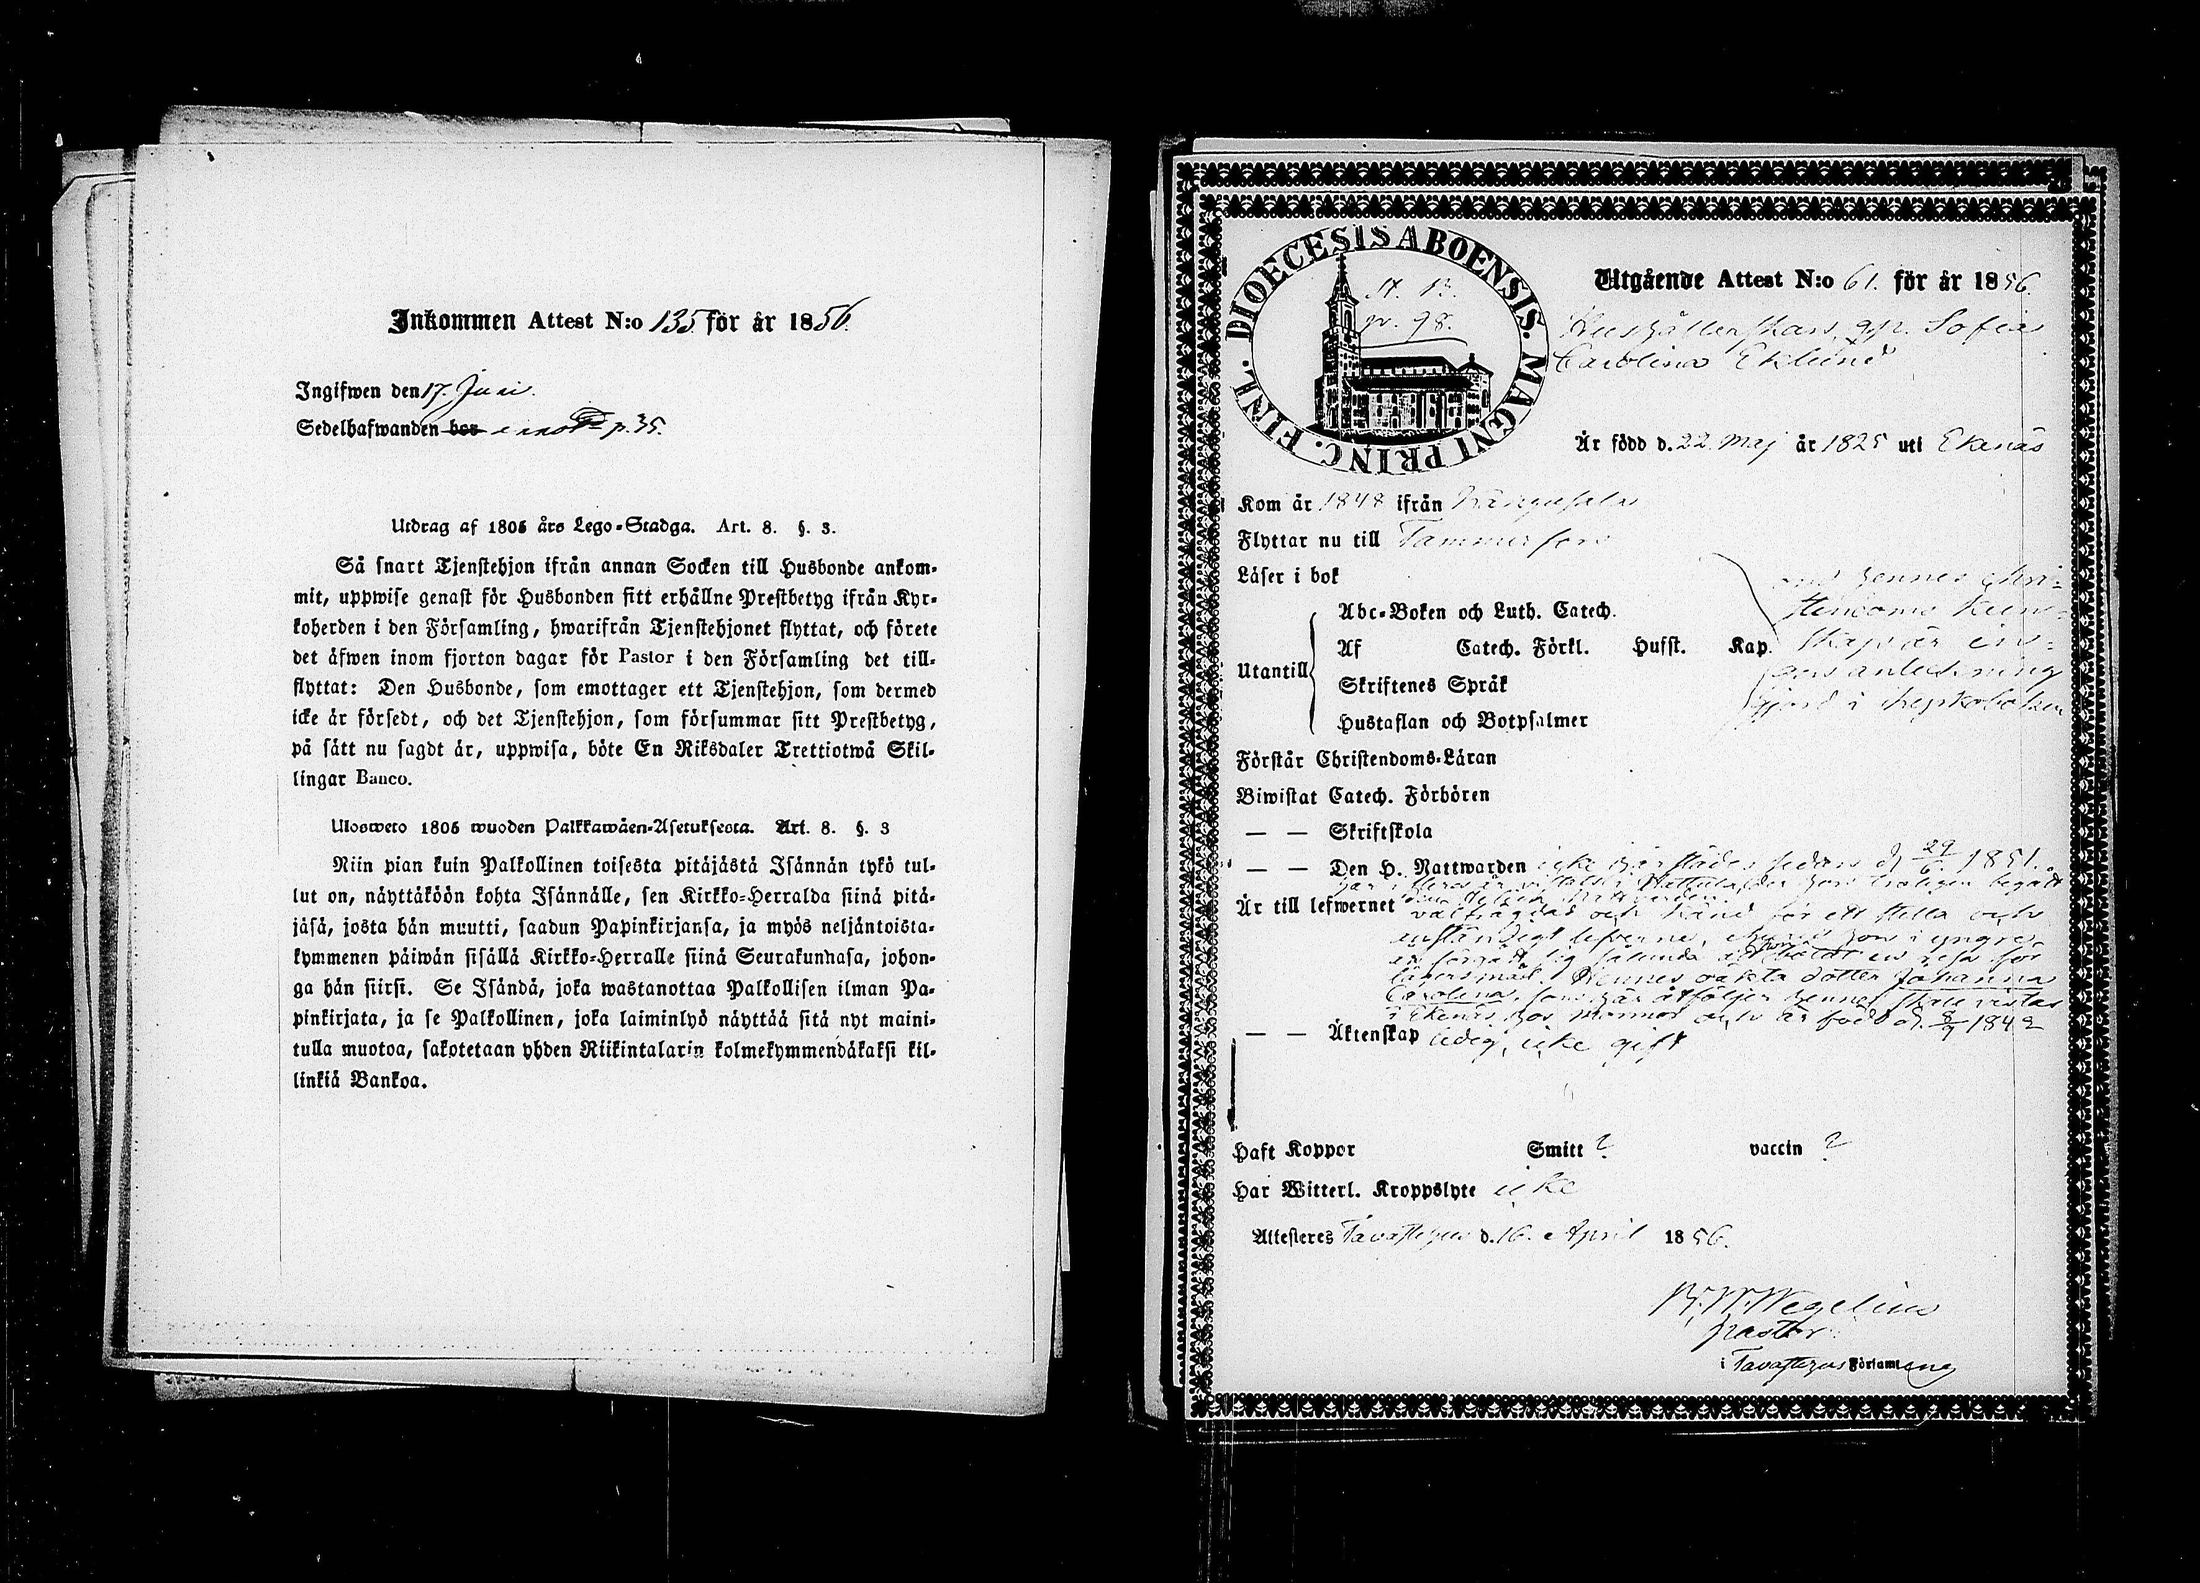 Inkommen Attest N:o 135 för år 1856.
Ingifwen den 17. Juni.
Sedelhafwanden bor p. 35.
Utdrag af 1805 års Lego-Stadga. Art. 8. §. 3.
Så snart Tjenstehjon ifrån annan Socken till Husbonde ankom-
mit, uppwise genast för Husbonden sitt erhållne Prestbetyg ifrån Kyr-
koherden i den Församling, hwarifrån Tjenstehjonet flyttat, och förete
det äfwen inom fjorton dagar för Pastor i den Församling det till-
flyttat: Den Husbonde, som emottager ett Tjenstehjon, som dermed
icke är försedt, och det Tjenstehjon, som försummar sitt Prestbetyg,
på sätt nu sagdt är, uppwisa, böte En Riksdaler Trettiotwå Skil-
lingar Banco.
Ulosweto 1805 wuoden Palkkawäen-Asetuksesta. Art. 8. §. 3
Niin pian kuin Palkollinen toisesta pitäjästä Isännän tykö tul-
lut on, näyttäköön kohta Isännälle, sen Kirkko-Herralda siinä pitä-
jäsä, josta hän muutti, saadun Papinkirjansa, ja myös neljäntoista-
kymmenen päiwän sisällä Kirkko-Herralle siinä Seurakunnasa, johon-
ga hän siirsi. Se Isändä, joka wastanottaa Palkollisen ilman Pa-
pinkirjata, ja se Palkollinen, joka laiminlyö näyttää sitä nyt maini-
tulla muotoa, sakotetaan yhden Riikintalarin kolmekymmendäkaksi kil-
linkiä Bankoa.
DIOECESIS ABOENSIS. MAGNI PRINC. FINL.
p. 98.
Utgående Attest N:o 61. för år 1856.
Hushållerskan, Sofia
Carolina Eklund
Är född d. 22. Maj år 1825 uti Ekenäs
Kom år 1848 ifrån
Flyttar nu till Tammerfors
Läser i bok
Utantill
Abc-Boken och Luth. Catech.
Af Catech. Förkl. Husst. Kap.
Skriftenes Språk
Hustaflan och Botpsalmer
om hennes Chri-
stendoms kun-
skap är in-
gen anteckning
gjord i Kyrkoboken
Förstår Christendoms-Läran
Biwistat Catech. Förhören
— — Skriftskola
— — Den H. Nattwarden icke härstädes sedan d. 29/6 1851.
Är till lefwernet
välfrägdad och känd för ett stilla och
anständigt lefverne,
Hennes oäkta dotter Johanna
Carolina, som
i Ekenäs hos mormor och är född d.
— — Äktenskap ledig, icke gift
Haft Koppor Smitt ? vaccin ?
Har Witterl. Kroppslyte icke
Attesteres Tavastehus d. 16. April 1856.
Wegelius
pastor
i Tavastehus Församling